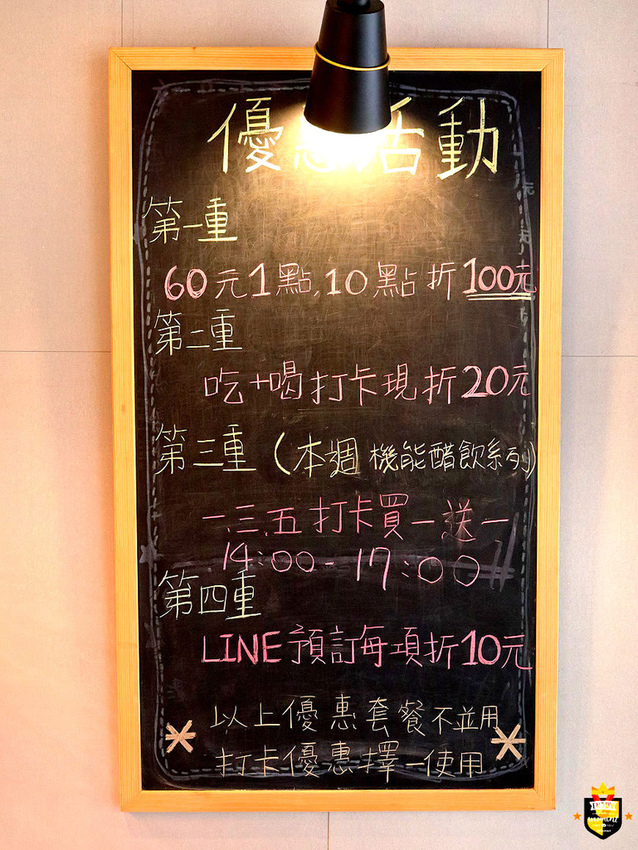 優惠活動
第一重
60元1點,10點折100元
第二重
吃+喝打卡現折20元
第三重(本週機能醋飲系列)
一.三.五打卡買一送一
14:00-17:00
第四重
LINE預訂每項折10元
以上優惠套餐不並用
打卡優惠擇一使用